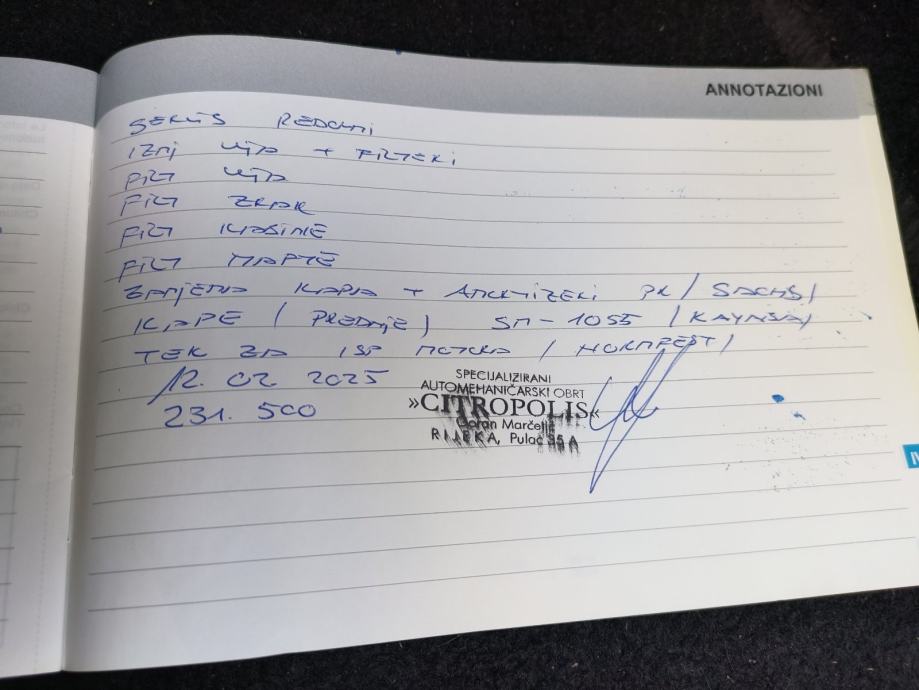 ANNOTAZIONI
SERVIS REDOVNI
IZMJ ULJA + FILTERI
FILT ULJA
FILT ZRAK
FILT KABINE
FILT NAFTE
ZAMJENA KAPA + AMORTIZERI PR / SACHS /
KAPE / PREDNJE / SM-1055 / KAYABA /
TEK ZA ISP MOTORA /
12. 02 2025
231. 500
SPECIJALIZIRANI
AUTOMEHANIČARSKI OBRT
»CITROPOLIS«
Goran
RIJEKA, Pulac 35 A
IV